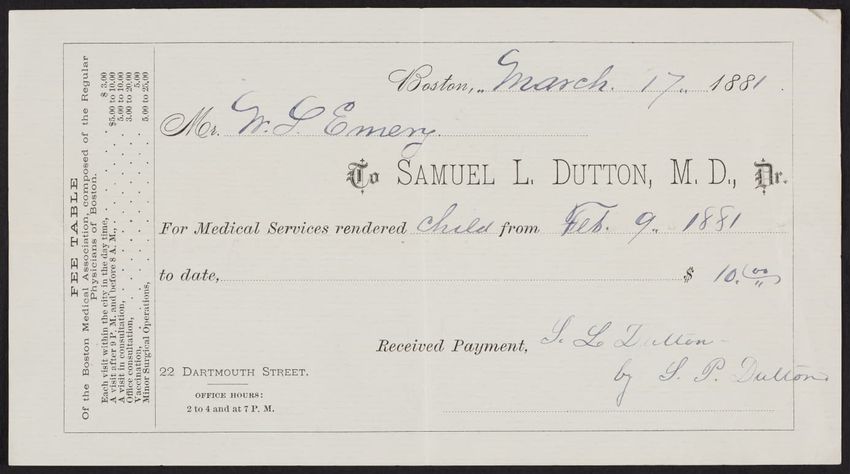 FEE TABLE
Of the Boston Medical Association, composed of the Regular
Physicians of Boston.
Each visit within the city in the day time, . . $ 3.00
A visit after 9 P. M. and before 8 A. M., . . $5.00 to 10.00
A visit in consultation, . . . 5.00 to 10.00
Office consultation, . . . 3.00 to 20.00
Vaccination, . . . 5.00
Minor Surgical Operations, . . . 5.00 to 25.00
Boston, March. 17, 1881.
Mr. W. L. Emery.
To SAMUEL L. DUTTON, M. D., Dr.
For Medical Services rendered child from Feb. 9. 1881
to date, $ 10.00
Received Payment, S. L. Dutton
by S. P. Dutton
22 DARTMOUTH STREET.
OFFICE HOURS:
2 to 4 and at 7 P. M.